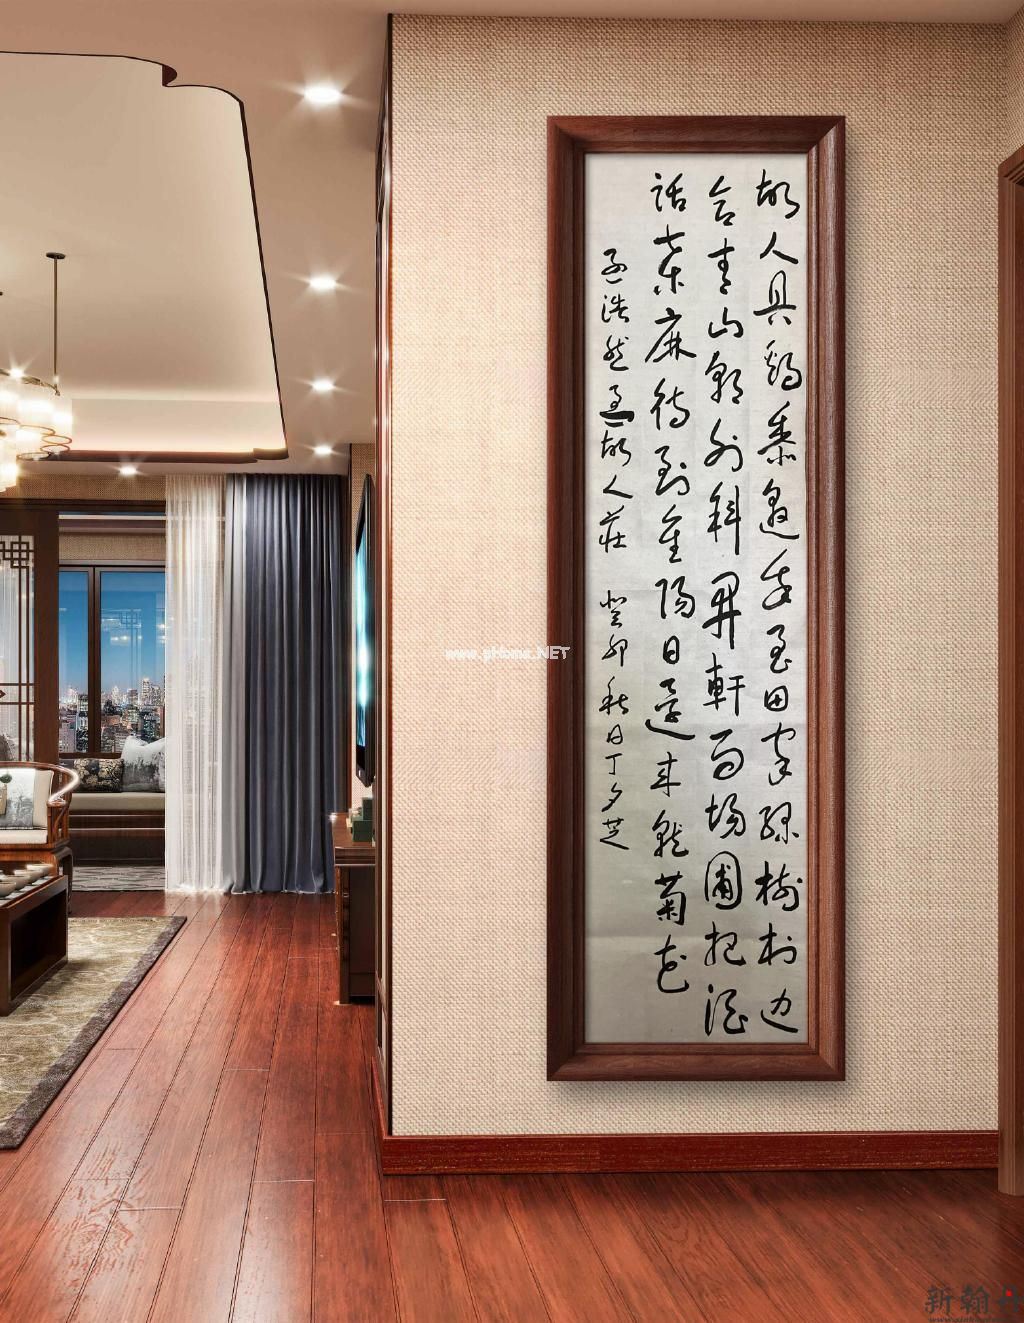 故人具鸡黍邀我至田家绿树村边
合青山郭外斜開軒面场圃把酒
话桑麻待到重陽日還来就菊花
孟浩然過故人莊 癸卯秋日丁夕芝
www.pHome.NET
新翰丹